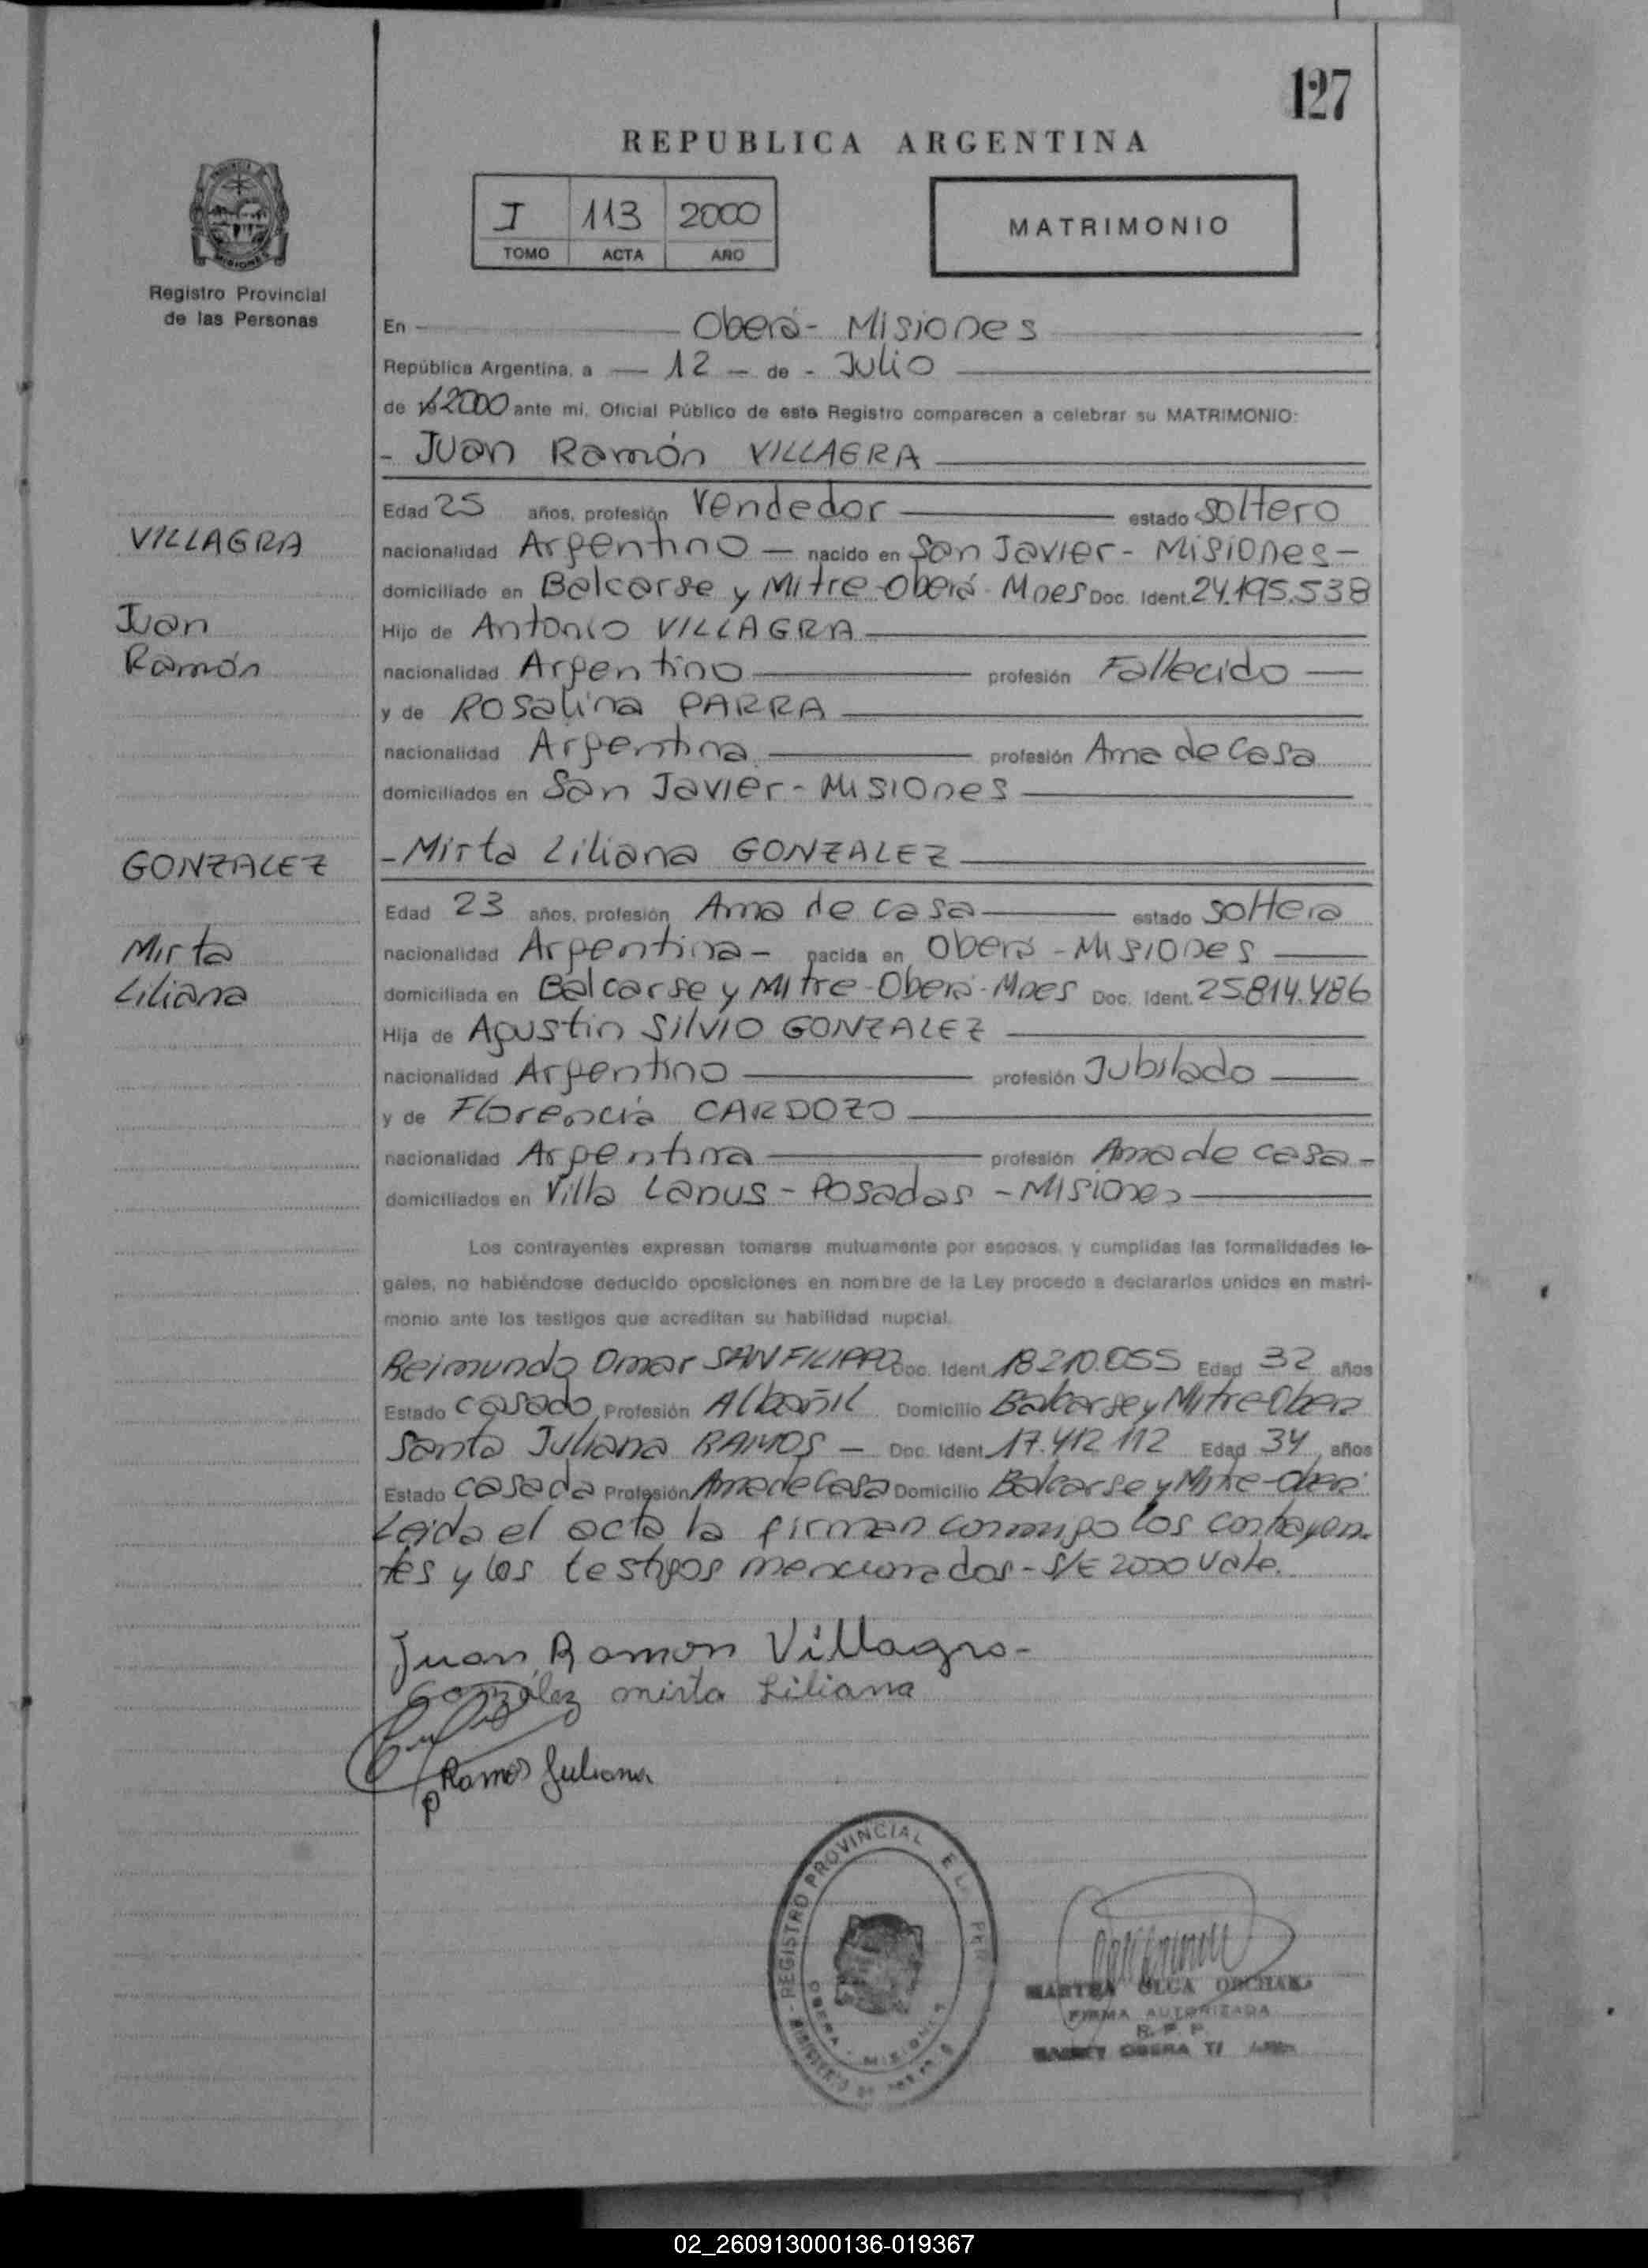 127
REPUBLICA ARGENTINA
I 113 2000
TOMO ACTA AÑO
MATRIMONIO
Registro Provincial
de las Personas
En Oberá - Misiones
República Argentina, a 12 de - Julio
de 19 2000 ante mi, Oficial Público de este Registro comparecen a celebrar su MATRIMONIO:
- Juan Ramón VILLAGRA
Edad 25 años, profesión Vendedor estado soltero
VILLAGRA
nacionalidad Argentino - nacido en San Javier - Misiones -
domiciliado en Balcarse y Mitre - Oberá - Mnes Doc. Ident. 24.195.538
Juan
Hijo de Antonio VILLAGRA
Ramón
nacionalidad Argentino profesión Fallecido
y de Rosalina PARRA
nacionalidad Argentina profesión Ama de Casa
domiciliados en San Javier - Misiones
GONZALEZ
- Mirta Liliana GONZALEZ
Edad 23 años, profesión Ama de casa estado soltera
Mirta
nacionalidad Argentina - nacida en Oberá - Misiones
Liliana
domiciliada en Balcarse y Mitre - Oberá - Mnes Doc. Ident. 25.814.486
Hija de Agustin Silvio GONZALEZ
nacionalidad Argentino profesión Jubilado
y de Florencia CARDOZO
nacionalidad Argentina profesión Ama de casa -
domiciliados en Villa Lanus - Posadas - Misiones
Los contrayentes expresan tomarse mutuamente por esposos, y cumplidas las formalidades le-
gales, no habiéndose deducido oposiciones en nombre de la Ley procedo a declararlos unidos en matri-
monio ante los testigos que acreditan su habilidad nupcial.
Reimundo Omar SANFILIPPO Doc. Ident. 18.210.055 Edad 32 años
Estado casado Profesión Albañil Domicilio Balcarse y Mitre - Oberá
Santa Juliana RAMOS - Doc. Ident. 17.412.112 Edad 34 años
Estado casada Profesión Ama de Casa Domicilio Balcarse y Mitre - Oberá
Leida el acta la firman conmigo los contrayen-
tes y los testigos mencionados - S/E 2000 Vale.
Juan Ramon Villagra -
González mirta Liliana
Ramos Juliana
REGISTRO PROVINCIAL
OBERA - MISIONES
MARTHA OLGA
FIRMA AUTORIZADA
R. P. P.
OBERA
02_260913000136-019367